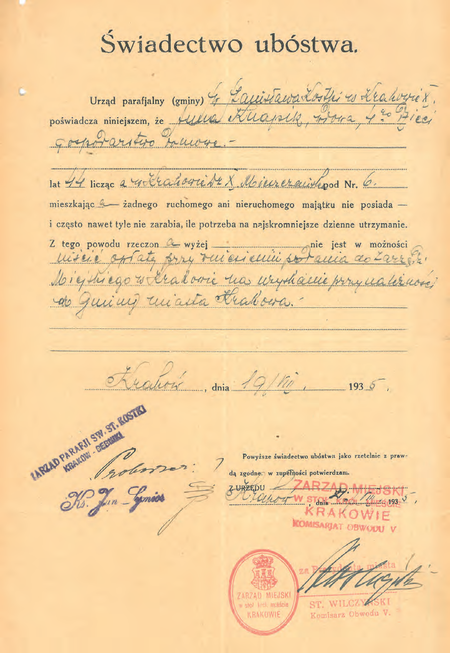 Świadectwo ubóstwa.
Urząd parafjalny (gminy) św. Stanisława Kostki w Krakowie X.
poświadcza niniejszem, że Anna Knapik, wdowa, 4-ro dzieci
gospodarstwo domowe.-
lat 44 licząc a w Krakowie Dz X Mieszczańska pod Nr. 6.
mieszkając a żadnego ruchomego ani nieruchomego majątku nie posiada —
i często nawet tyle nie zarabia, ile potrzeba na najskromniejsze dzienne utrzymanie.
Z tego powodu rzeczon a wyżej nie jest w możności
uiścić opłaty przy wniesieniu podania do Zarz.
Miejskiego w Krakowie na uzyskanie przynależności
do Gminy miasta Krakowa.-
Kraków, dnia 19/VIII. 1935.
ZARZĄD PARAFJI ŚW. ST. KOSTKI
KRAKÓW - DĘBNIKI
Proboszcz:
Ks. Jan
Powyższe świadectwo ubóstwa jako rzetelnie z praw-
dą zgodne w zupełności potwierdzam.
Z URZĘDU
ZARZĄD MIEJSKI
W STOŁ. KRÓL. MIEŚCIE
Kraków, dnia 1935
KRAKOWIE
KOMISARJAT OBWODU V
ZARZĄD MIEJSKI
w stoł. król. mieście
KRAKOWIE
za Prezydenta miasta
ST. WILCZYŃSKI
Komisarz Obwodu V.